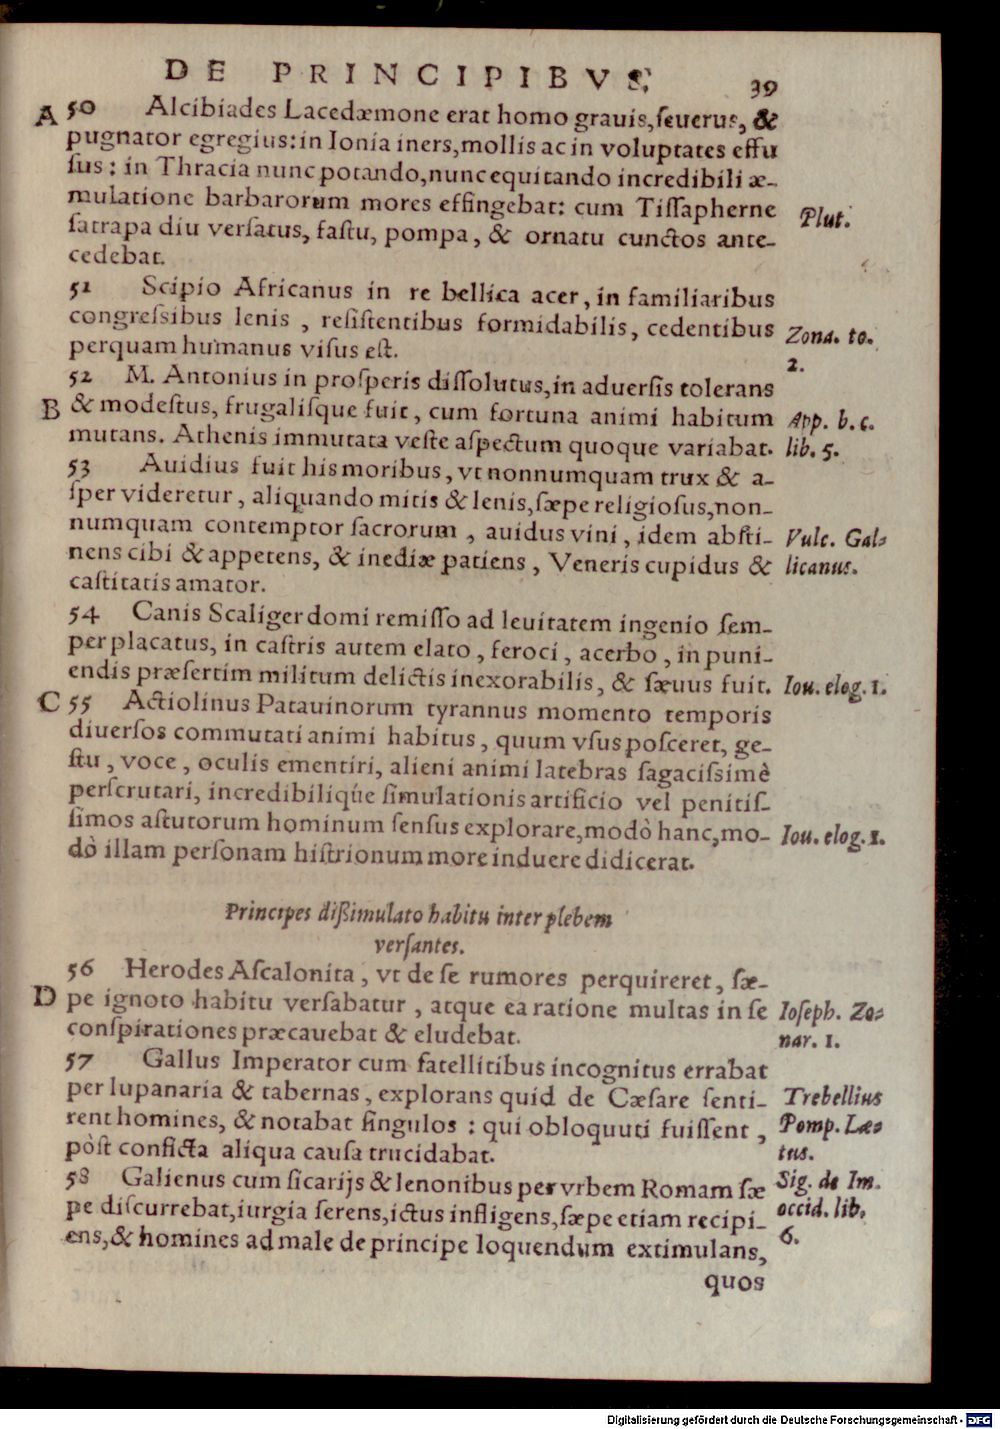 DE PRINCIPIBVS. 39
A 50 Alcibiades Lacedæmone erat homo grauis, ſeuerus, &
pugnator egregius: in Ionia iners, mollis ac in voluptates effu
ſus: in Thracia nunc potando, nunc equitando incredibili æ-
mulatione barbarorum mores effingebat: cum Tiſſapherne
Plut.
ſatrapa diu verſatus, faſtu, pompa, & ornatu cunctos ante-
cedebat.
51 Scipio Africanus in re bellica acer, in familiaribus
congreſsibus lenis, reſiſtentibus formidabilis, cedentibus
Zona. to.
perquam humanus viſus eſt.
2.
52 M. Antonius in proſperis diſſolutus, in aduerſis tolerans
B & modeſtus, frugaliſque fuit, cum fortuna animi habitum
App. b. c.
mutans. Athenis immutata veſte aſpectum quoque variabat.
lib. 5.
53 Auidius fuit his moribus, vt nonnumquam trux & a-
ſper videretur, aliquando mitis & lenis, ſæpe religioſus, non-
numquam contemptor ſacrorum, auidus vini, idem abſti-
Vulc. Gal-
nens cibi & appetens, & inediæ patiens, Veneris cupidus &
licanus.
caſtitatis amator.
54 Canis Scaliger domi remiſſo ad leuitatem ingenio ſem-
per placatus, in caſtris autem elato, feroci, acerbo, in puni-
endis præſertim militum delictis inexorabilis, & ſæuus fuit.
Iou. elog. 1.
C 55 Actiolinus Patauinorum tyrannus momento temporis
diuerſos commutati animi habitus, quum vſus poſceret, ge-
ſtu, voce, oculis ementiri, alieni animi latebras ſagaciſsimè
perſcrutari, incredibiliqué ſimulationis artificio vel penitiſ-
ſimos aſtutorum hominum ſenſus explorare, modò hanc, mo-
Iou. elog. 1.
dò illam perſonam hiſtrionum more induere didicerat.
Principes dißimulato habitu inter plebem
verſantes.
56 Herodes Aſcalonita, vt de ſe rumores perquireret, ſæ-
D pe ignoto habitu verſabatur, atque ea ratione multas in ſe
Ioſeph. Zo-
conſpirationes præcauebat & eludebat.
nar. 1.
57 Gallus Imperator cum ſatellitibus incognitus errabat
per lupanaria & tabernas, explorans quid de Cæſare ſenti-
Trebellius
rent homines, & notabat ſingulos: qui obloquuti fuiſſent,
Pomp. Læ-
pòſt conficta aliqua cauſa trucidabat.
tus.
58 Galienus cum ſicarijs & lenonibus per vrbem Romam ſæ
Sig. de Im.
pe diſcurrebat, iurgia ſerens, ictus infligens, ſæpe etiam recipi-
occid. lib.
ens, & homines ad male de principe loquendum extimulans,
6.
quos
Digitalisierung gefördert durch die Deutsche Forschungsgemeinschaft - DFG